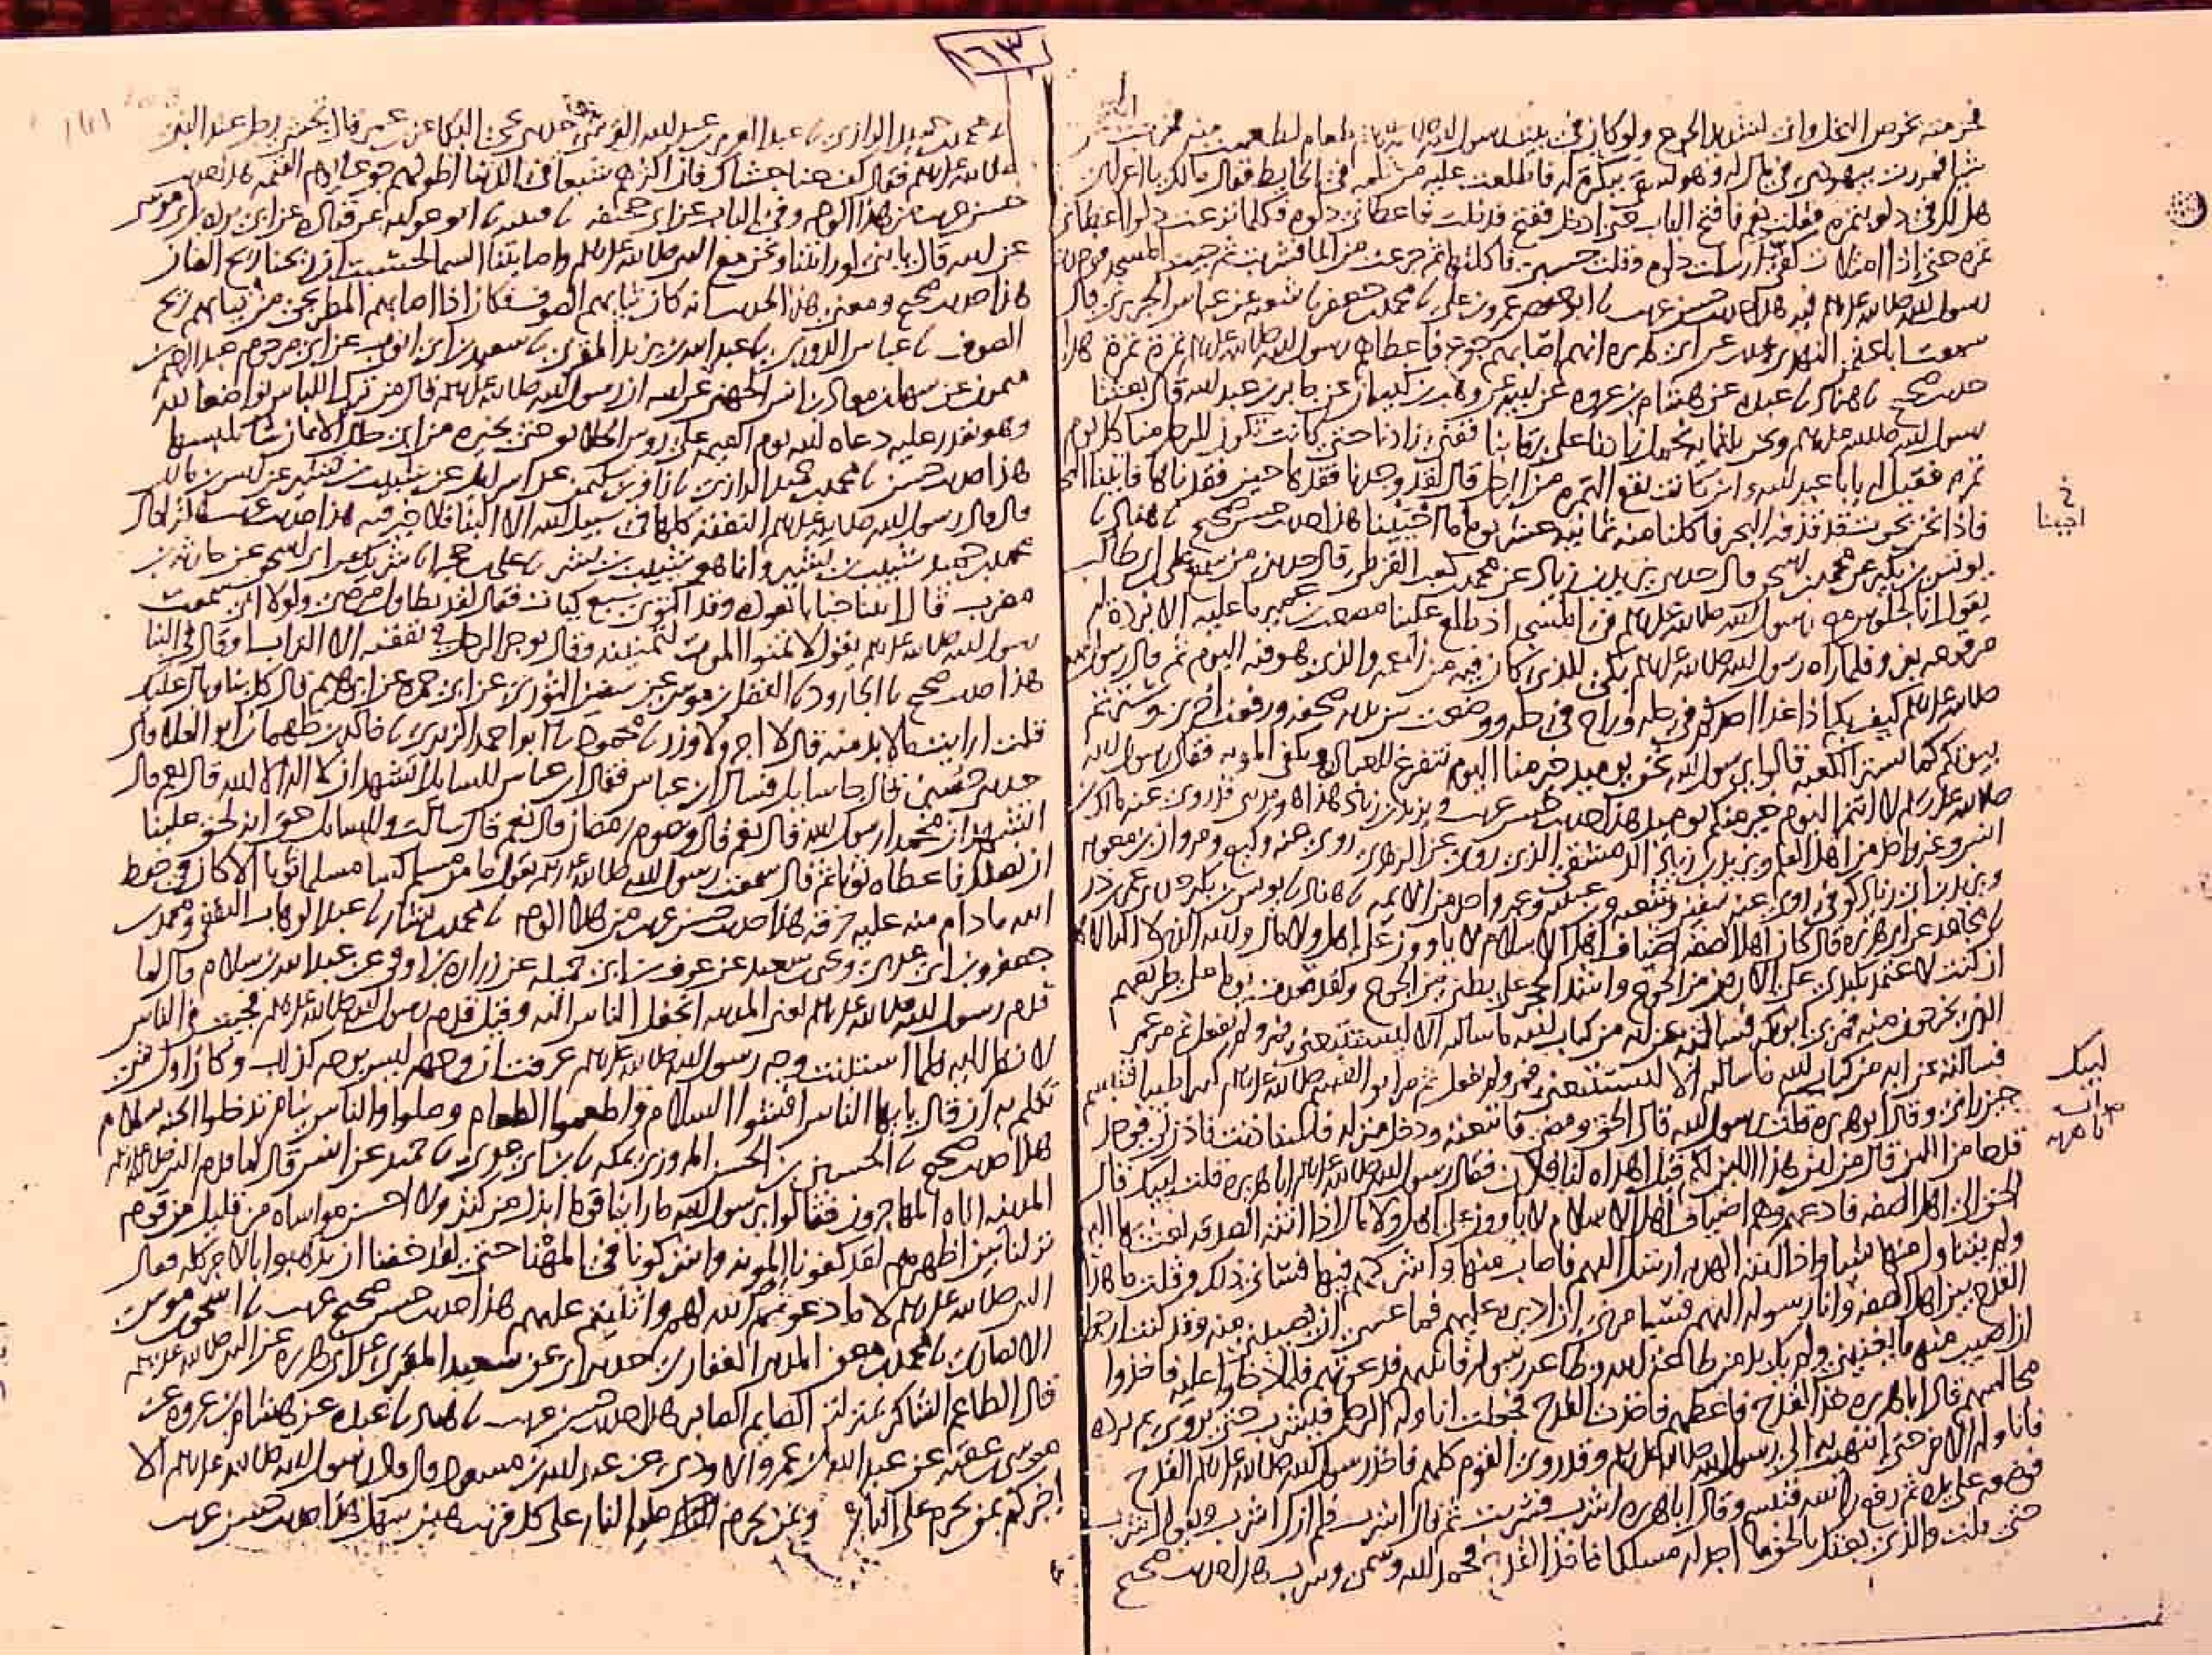 ٦٣
فخر منه نحوص النخل وانى لشديد الجوع ولو كان فى بيت رسول الله صلى الله عليه طعام لطعمت منه فخرجت
شيا فمررت بيهودى فى مال له وهو يسقى ببكرة له فاطلعت عليه من ثلمه فى الحايط فقال مالك يا اعرابى
هل لك فى دلو بتمرة فقلت نعم فافتح الباب حتى ادخل ففتح فدخلت فاعطانى دلوه فكلما نزعت دلوا اعطانى
تمره حتى اذا امتلات كفى ارسلت دلوه وقلت حسبى فاكلتها ثم جرعت من الما فشربت ثم جيت المسجد فوجدت
رسول الله صلى الله عليه وسلم فيه هذا حديث حسن غريب نا ابو حفص عمرو بن على نا محمد بن جعفر نا شعبه عن عباس الجريرى قال
سمعت ابا عثمن النهدى يحدث عن ابى هريره انهم اصابهم جوع فاعطاهم رسول الله صلى الله عليه وسلم تمرة تمرة هذا
حديث صحيح نا هناد نا عبده عن هشام بن عروه عن ابيه عن وهب بن كيسان عن جابر بن عبد الله قال بعثنا
رسول الله صلى الله عليه وسلم ونحن ثلثمايه نحمل زادنا على رقابنا ففنى زادنا حتى كانت تكون للرجل منا كل يوم
تمره فقيل له يابا عبد الله واين كانت تقع التمره من الرجل قال لقد وجدنا فقدها حين فقدناها فاتينا البحر
فاذا نحن بحوت قد قذفه البحر فاكلنا منه ثمانيه عشر يوما ما احببنا هذا حديث حسن صحيح نا هناد نا
يونس بن بكير عن محمد بن اسحق قال حدثنى يزيد بن زياد عن محمد بن كعب القرظى قال حدثنى من سمع على بن ابى طالب
يقول انا لجلوس مع رسول الله صلى الله عليه وسلم فى المسجد اذ طلع علينا مصعب بن عمير ما عليه الا بردة له
مرقوعه بفرو فلما راه رسول الله صلى الله عليه وسلم بكى للذى كان فيه من النعمه والذى هو فيه اليوم ثم قال رسول الله
صلى الله عليه وسلم كيف بكم اذا غدا احدكم فى حله وراح فى حله ووضعت بين يديه صحفه ورفعت اخرى وسترتم
بيوتكم كما تستر الكعبه قالوا يرسول الله نحن يوميد خير منا اليوم نتفرغ للعباده ونكفى المونه فقال رسول الله
صلى الله عليه وسلم لا انتم اليوم خير منكم يوميد هذا حديث حسن غريب ويزيد بن زياد هذا هو مدينى قد روى عنه مالك بن
انس وغير واحد من اهل العلم ويزيد بن زياد الدمشقى الذى روى عن الزهرى روى عنه وكيع ومروان بن معويه
ويزيد بن ابى زياد كوفى روى عنه سفين وشعبه وغير واحد من الايمه نا هناد نا يونس بن بكير حدثنى عمر بن ذر
نا مجاهد عن ابى هريره قال كان اهل الصفه اضياف اهل الاسلام لا ياوون على اهل ولا مال والله الذى لا اله الا هو
ان كنت لاعتمد بكبدى على الارض من الجوع واشد الحجر على بطنى من الجوع ولقد قعدت يوما على طريقهم
الذى يخرجون منه فمر بى ابو بكر فسالته عن ايه من كتاب الله ما سالته الا ليستتبعنى فمر ولم يفعل ثم مر عمر
فسالته عن ايه من كتاب الله ما سالته الا ليستتبعنى فمر ولم يفعل ثم مر ابو القسم صلى الله عليه وسلم فتبسم
حين رانى وقال ابو هريره قلت لبيك رسول الله قال الحق ومضى فاتبعته ودخل منزله فاستاذنت فاذن لى فوجد
قدحا من اللبن قال من اين هذا اللبن لكم قيل اهداه لنا فلان فقال رسول الله صلى الله عليه وسلم ابا هريره قلت لبيك قال
الحق الى اهل الصفه فادعهم وهم اضياف اهل الاسلام لا ياوون على اهل ولا مال اذا اتته الصدقه بعث بها اليهم
ولم يتناول منها شيا واذا اتته الهديه ارسل اليهم فاصاب منها واشركهم فيها فسانى ذلك وقلت ما هذا
القدح بين اهل الصفه وانا رسوله اليهم فسيامرنى ان اديره عليهم فما عسى ان يصيبنى منه وقد كنت ارجوا
ان اصيب منه ما يغنينى ولم يك بد من طاعه الله وطاعه رسوله فاتيتهم فدعوتهم فلما دخلوا عليه فاخذوا
مجالسهم قال ابا هريره خذ القدح فاعطهم فاخذت القدح فجعلت اناوله الرجل فيشرب حتى يروى ثم يرده
فاناوله الاخر حتى انتهيت الى رسول الله صلى الله عليه وسلم وقد روى القوم كلهم فاخذ رسول الله صلى الله عليه وسلم القدح
فوضعه على يده ثم رفع راسه فتبسم وقال ابا هريره اشرب فشربت ثم قال اشرب فلم ازل اشرب ويقول اشرب
حتى قلت والذى بعثك بالحق ما اجد له مسلكا فاخذ القدح فحمد الله وسمى وشرب هذا حديث صحيح
خ
احببنا
لبيك
نا محمد بن حميد الرازى نا عبد العزيز بن عبد الله القرشى حدثنى يحيى البكا عن ابن عمر قال تجشى رجل عند النبى
صلى الله عليه وسلم فقال كف عنا جشاك فان اكثرهم شبعا فى الدنيا اطولهم جوعا يوم القيمه هذا حديث
حسن غريب من هذا الوجه وفى الباب عن ابى جحيفه نا قتيبه نا ابو عوانه عن قتاده عن ابى برده بن ابى موسى
عن ابيه قال يا بنى لو رايتنا ونحن مع النبى صلى الله عليه وسلم واصابتنا السما لحسبت ان ريحنا ريح الضان
هذا حديث صحيح ومعنى هذا الحديث انه كان ثيابهم الصوف فكان اذا اصابهم المطر يجى من ثيابهم ريح
الصوف نا عباس الدورى نا عبد الله بن يزيد المقرى نا سعيد بن ابى ايوب عن ابى مرحوم عبد الرحيم بن
ميمون عن سهل بن معاذ بن انس الجهنى عن ابيه ان رسول الله صلى الله عليه وسلم قال من ترك اللباس تواضعا لله
وهو يقدر عليه دعاه الله يوم القيمه على روس الخلايق حتى يخيره من اى حلل الايمان شا يلبسها
هذا حديث حسن نا محمد بن حميد الرازى نا زافر بن سليمن عن اسرايل عن شبيب بن بشير عن انس بن مالك
قال قال رسول الله صلى الله عليه وسلم النفقه كلها فى سبيل الله الا البنا فلا خير فيه هذا حديث غريب هكذا قال
محمد بن حميد شبيب بن بشير وانما هو شبيب بن بشر نا على بن حجر انا شريك عن ابى اسحق عن حارثه بن
مضرب قال اتينا خبابا نعوده وقد اكتوى سبع كيات فقال لقد تطاول مرضى ولولا انى سمعت
رسول الله صلى الله عليه وسلم يقول لا تمنوا الموت لتمنيته وقال يوجر الرجل فى نفقته الا التراب او قال فى البنا
هذا حديث صحيح نا الجارود نا الفضل بن موسى عن سفين الثورى عن ابى حمزه عن ابرهيم قال كل بنا وبال عليك
قلت ارايت ما لا بد منه قال لا اجر ولا وزر نا محمود نا ابو احمد الزبيرى نا خالد بن طهمان ابو العلا قال
حدثنى حصين قال جا سايل فسال ابن عباس فقال ابن عباس للسايل اتشهد ان لا اله الا الله قال نعم قال
اتشهد ان محمدا رسول الله قال نعم قال وتصوم رمضان قال نعم قال سالت وللسايل حق انه لحق علينا
ان نصلك فاعطاه ثوبا ثم قال سمعت رسول الله صلى الله عليه وسلم يقول ما من مسلم كسا مسلما ثوبا الا كان فى حفظ
الله ما دام منه عليه خرقه هذا حديث حسن غريب من هذا الوجه نا محمد بن بشار نا عبد الوهاب الثقفى ومحمد بن
جعفر وابن ابى عدى ويحيى بن سعيد عن عوف بن ابى جميله عن زراره بن اوفى عن عبد الله بن سلام قال لما
قدم رسول الله صلى الله عليه وسلم يعنى المدينه انجفل الناس اليه وقيل قدم رسول الله صلى الله عليه وسلم فجيت فى الناس
لانظر اليه فلما استثبت وجه رسول الله صلى الله عليه وسلم عرفت ان وجهه ليس بوجه كذاب وكان اول شى
تكلم به ان قال يايها الناس افشوا السلام واطعموا الطعام وصلوا والناس نيام تدخلوا الجنه بسلام
هذا حديث صحيح نا الحسين بن الحسن المروزى بمكه نا ابن ابى عدى نا حميد عن انس قال لما قدم النبى صلى الله عليه وسلم
المدينه اتاه المهاجرون فقالوا يرسول الله ما راينا قوما ابذل من كثير ولا احسن مواساه من قليل من قوم
نزلنا بين اظهرهم لقد كفونا المونه واشركونا فى المهنا حتى لقد خفنا ان يذهبوا بالاجر كله فقال
النبى صلى الله عليه وسلم لا ما دعوتم الله لهم واثنيتم عليهم هذا حديث حسن صحيح غريب نا اسحق بن موسى
الانصارى نا محمد بن معن المدينى الغفارى حدثنى ابى عن سعيد المقبرى عن ابى هريره عن النبى صلى الله عليه وسلم
قال الطاعم الشاكر بمنزله الصايم الصابر هذا حديث حسن غريب نا هناد نا عبده عن هشام بن عروه عن
موسى بن عقبه عن عبد الله بن عمرو الاودى عن عبد الله بن مسعود قال قال رسول الله صلى الله عليه وسلم الا
اخبركم بمن يحرم على النار وبمن تحرم عليه النار على كل قريب هين سهل هذا حديث حسن غريب